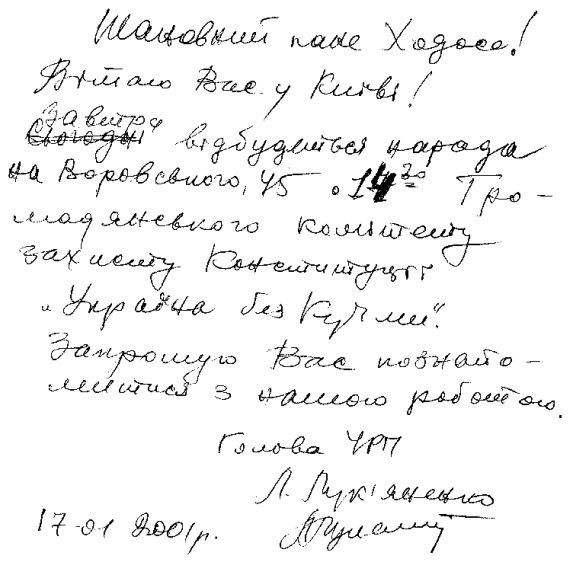 Шановний пане Ходосе!
Вітаю Вас у Києві!
Завтра
Сьогодні відбудеться нарада
на Воровського, 45 о 14 30 Гро-
мадянського комітету
захисту Конституції
„Україна без Кучми".
Запрошую Вас познайо-
митися з нашою роботою.
Голова УРП
Л. Лук'яненко
17-01 2001р.